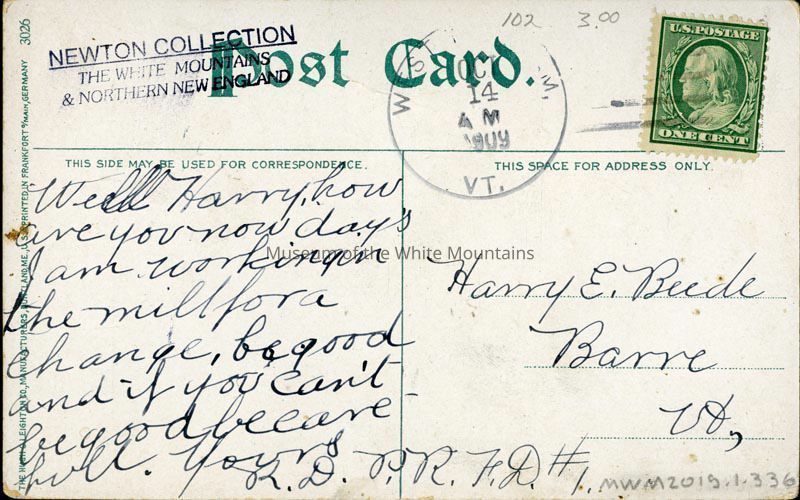 102 3.00
NEWTON COLLECTION
THE WHITE MOUNTAINS
& NORTHERN NEW ENGLAND
Post Card.
U.S. POSTAGE
ONE CENT
14
A M
1909
VT.
3026
THE HUGH C. LEIGHTON CO., MANUFACTURERS, PORTLAND, ME., U.S.A. PRINTED IN FRANKFORT o/MAIN, GERMANY
THIS SIDE MAY BE USED FOR CORRESPONDENCE.
THIS SPACE FOR ADDRESS ONLY.
Well Harry, how
are you now day's
I am working in
the mill for a
change, be good
and if you can't
be good be care-
full. Yours
R. D. P.
Museum of the White Mountains
Harry E. Beede
Barre
Vt,
R. F. D. #1.
MWM2019.1.336